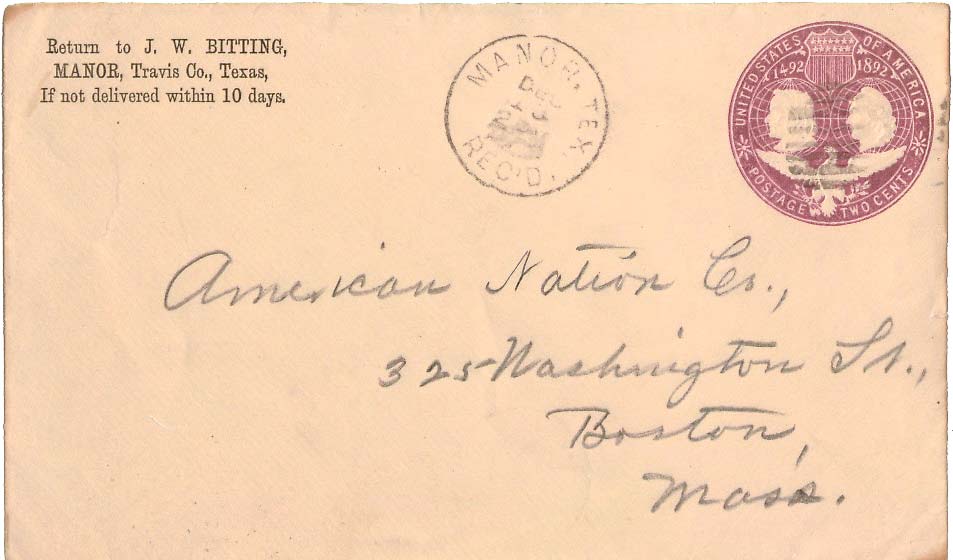 Return to J. W. BITTING,
MANOR, Travis Co., Texas,
If not delivered within 10 days.
MANOR, TEX.
DEC
REC'D.
UNITED STATES OF AMERICA
1492 1892
POSTAGE TWO CENTS
American Nation Co.,
325 Washington St.,
Boston,
Mass.